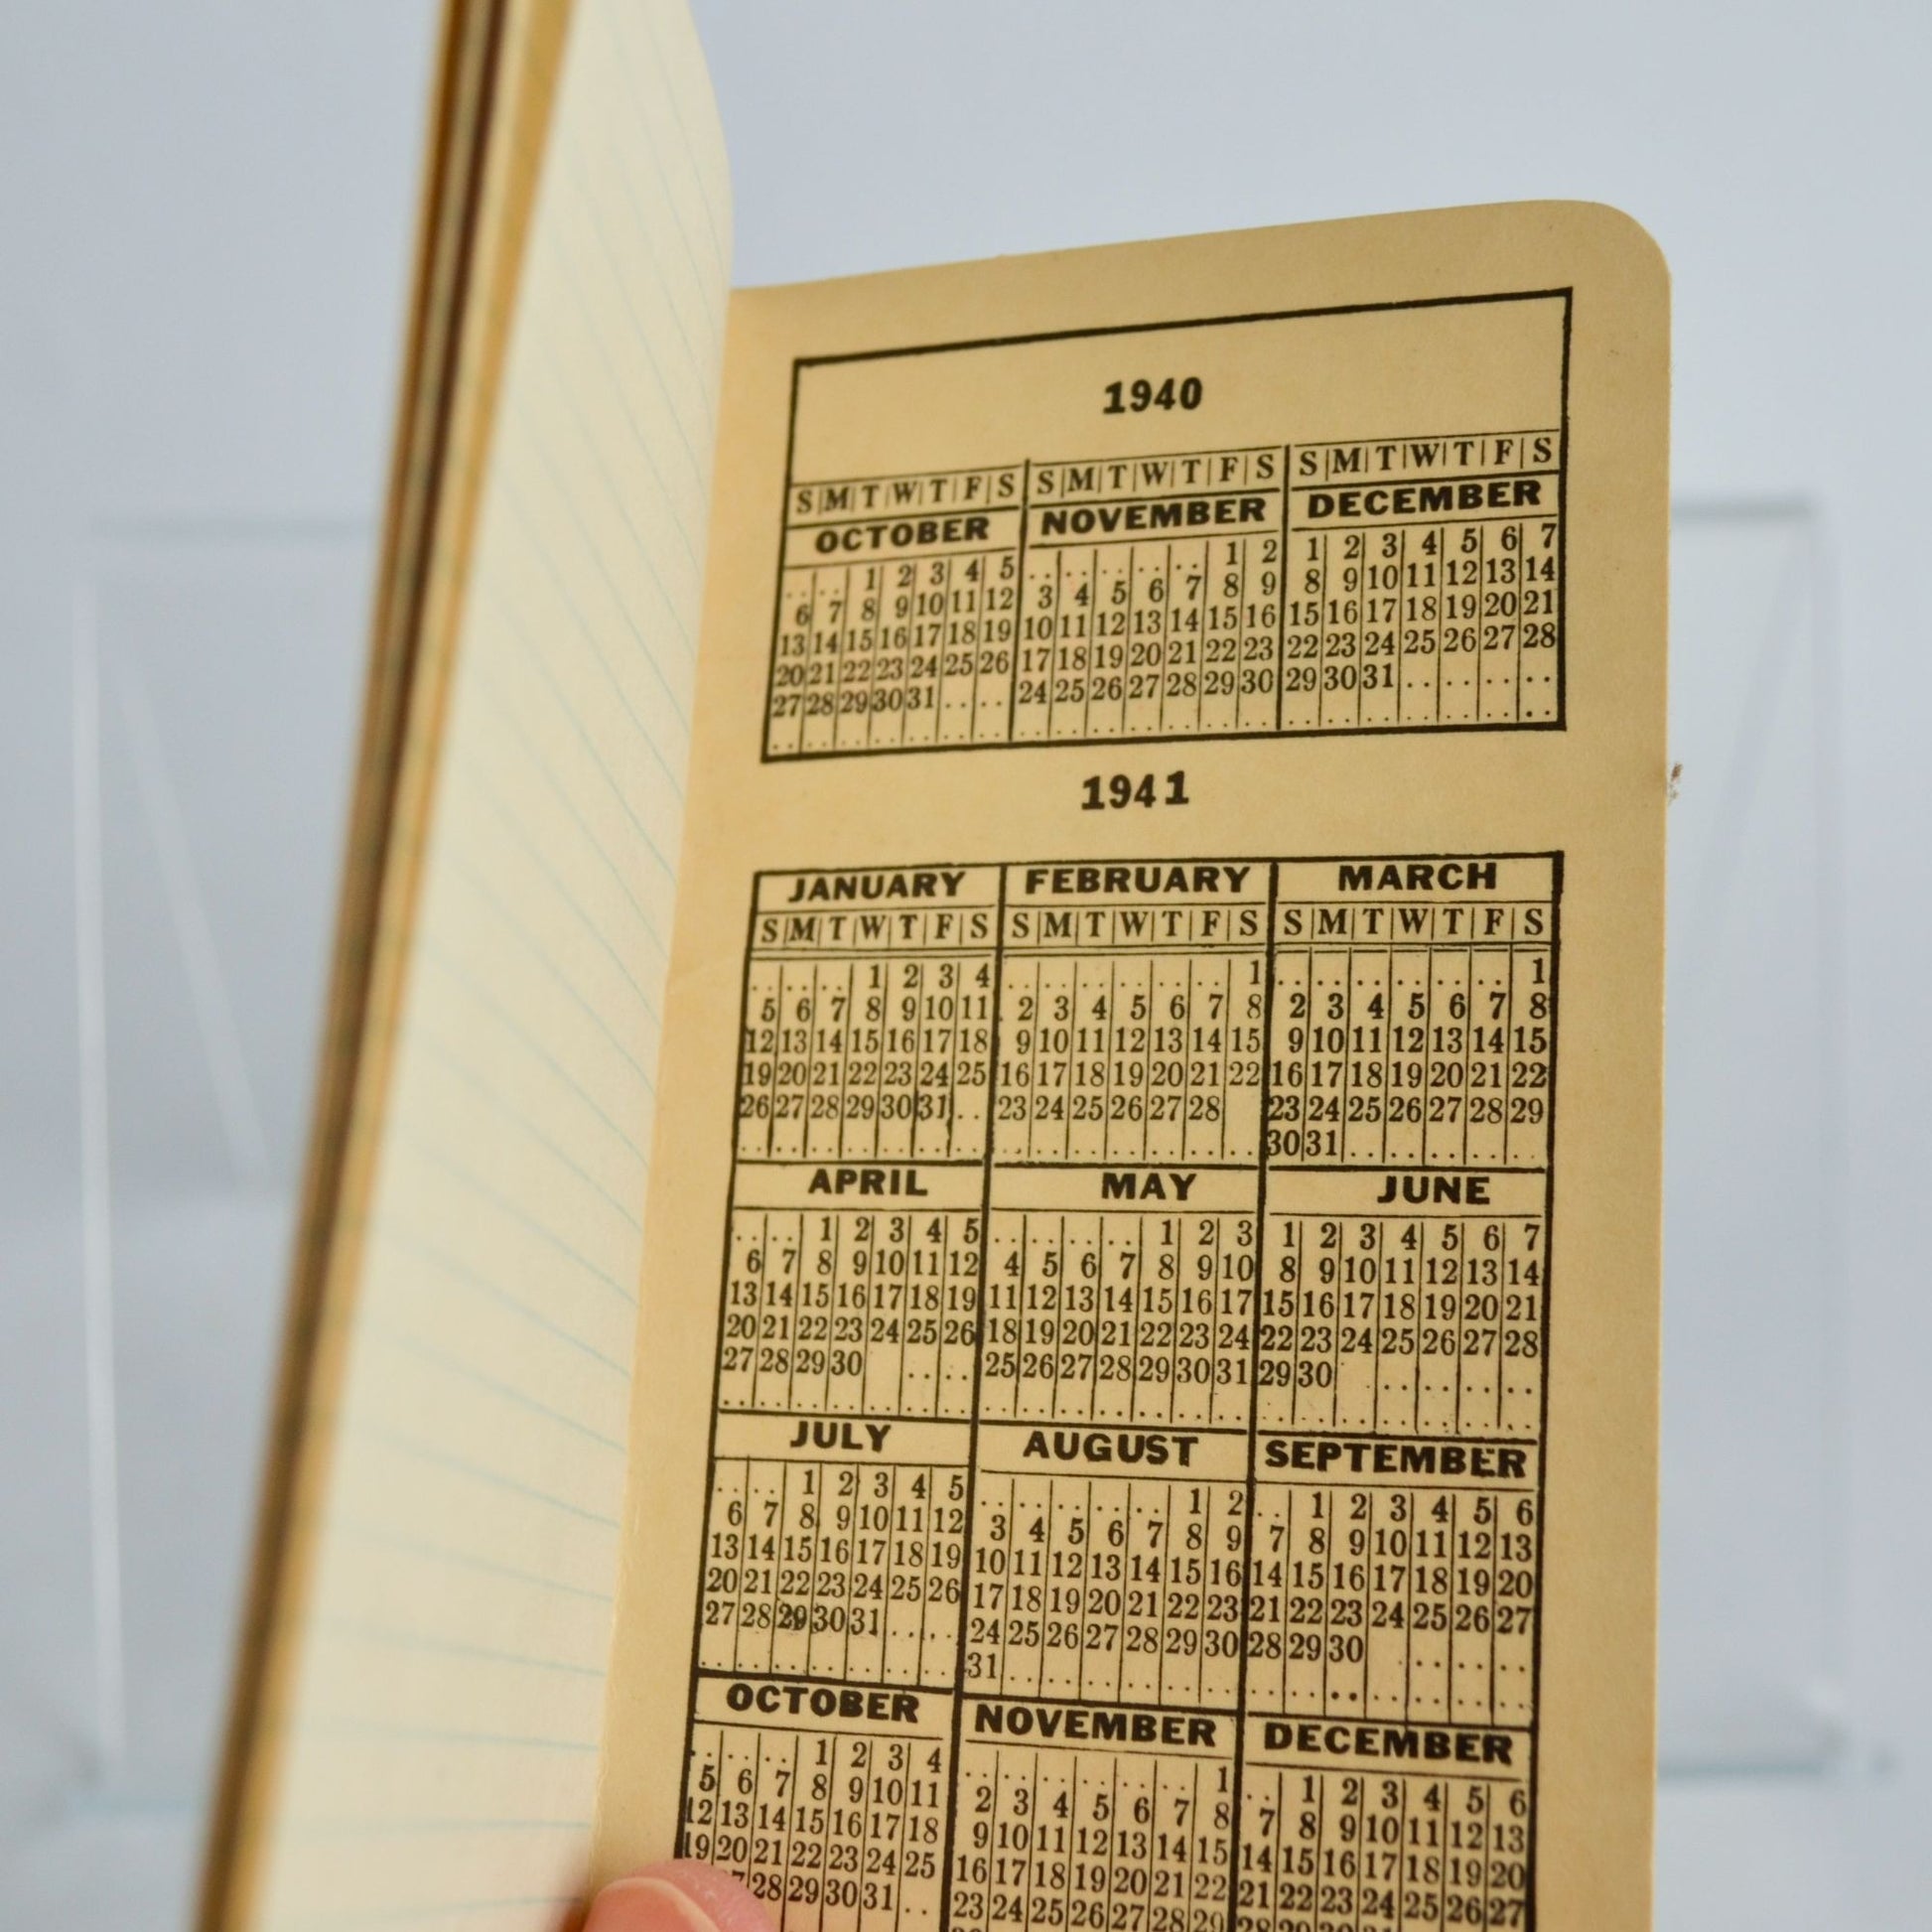 1940
S M T W T F S
OCTOBER
1 2 3 4 5
6 7 8 9 10 11 12
13 14 15 16 17 18 19
20 21 22 23 24 25 26
27 28 29 30 31
S M T W T F S
NOVEMBER
1 2
3 4 5 6 7 8 9
10 11 12 13 14 15 16
17 18 19 20 21 22 23
24 25 26 27 28 29 30
S M T W T F S
DECEMBER
1 2 3 4 5 6 7
8 9 10 11 12 13 14
15 16 17 18 19 20 21
22 23 24 25 26 27 28
29 30 31
1941
JANUARY
S M T W T F S
1 2 3 4
5 6 7 8 9 10 11
12 13 14 15 16 17 18
19 20 21 22 23 24 25
26 27 28 29 30 31
FEBRUARY
S M T W T F S
1
2 3 4 5 6 7 8
9 10 11 12 13 14 15
16 17 18 19 20 21 22
23 24 25 26 27 28
MARCH
S M T W T F S
1
2 3 4 5 6 7 8
9 10 11 12 13 14 15
16 17 18 19 20 21 22
23 24 25 26 27 28 29
30 31
APRIL
1 2 3 4 5
6 7 8 9 10 11 12
13 14 15 16 17 18 19
20 21 22 23 24 25 26
27 28 29 30
MAY
1 2 3
4 5 6 7 8 9 10
11 12 13 14 15 16 17
18 19 20 21 22 23 24
25 26 27 28 29 30 31
JUNE
1 2 3 4 5 6 7
8 9 10 11 12 13 14
15 16 17 18 19 20 21
22 23 24 25 26 27 28
29 30
JULY
1 2 3 4 5
6 7 8 9 10 11 12
13 14 15 16 17 18 19
20 21 22 23 24 25 26
27 28 29 30 31
AUGUST
1 2
3 4 5 6 7 8 9
10 11 12 13 14 15 16
17 18 19 20 21 22 23
24 25 26 27 28 29 30
31
SEPTEMBER
1 2 3 4 5 6
7 8 9 10 11 12 13
14 15 16 17 18 19 20
21 22 23 24 25 26 27
28 29 30
OCTOBER
1 2 3 4
5 6 7 8 9 10 11
12 13 14 15 16 17 18
19 20 21 22 23 24 25
28 29 30 31
NOVEMBER
1
2 3 4 5 6 7 8
9 10 11 12 13 14 15
16 17 18 19 20 21 22
23 24 25 26 27 28 29
DECEMBER
1 2 3 4 5 6
7 8 9 10 11 12 13
14 15 16 17 18 19 20
21 22 23 24 25 26 27